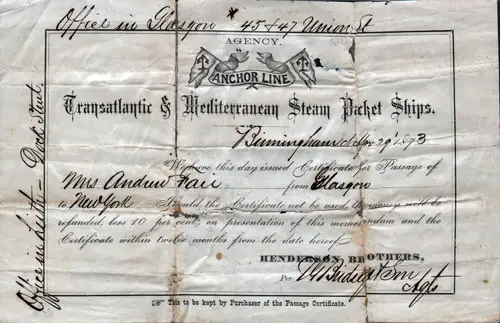 Office in Glasgow * 45 & 47 Union St
AGENCY.
ANCHOR LINE
Transatlantic & Mediterranean Steam Packet Ships.
Birmingham 29 1893
We have this day issued Certificate for Passage of
Mrs Andrew from Glasgow
to New York Should the Certificate not be used, the money will be
refunded, less 10 per cent, on presentation of this memorandum and the
Certificate within twelve months from the date hereof.
HENDERSON BROTHERS,
Per Son Agts
☞ This to be kept by Purchaser of the Passage Certificate.
Office in Leith - Dock Street.